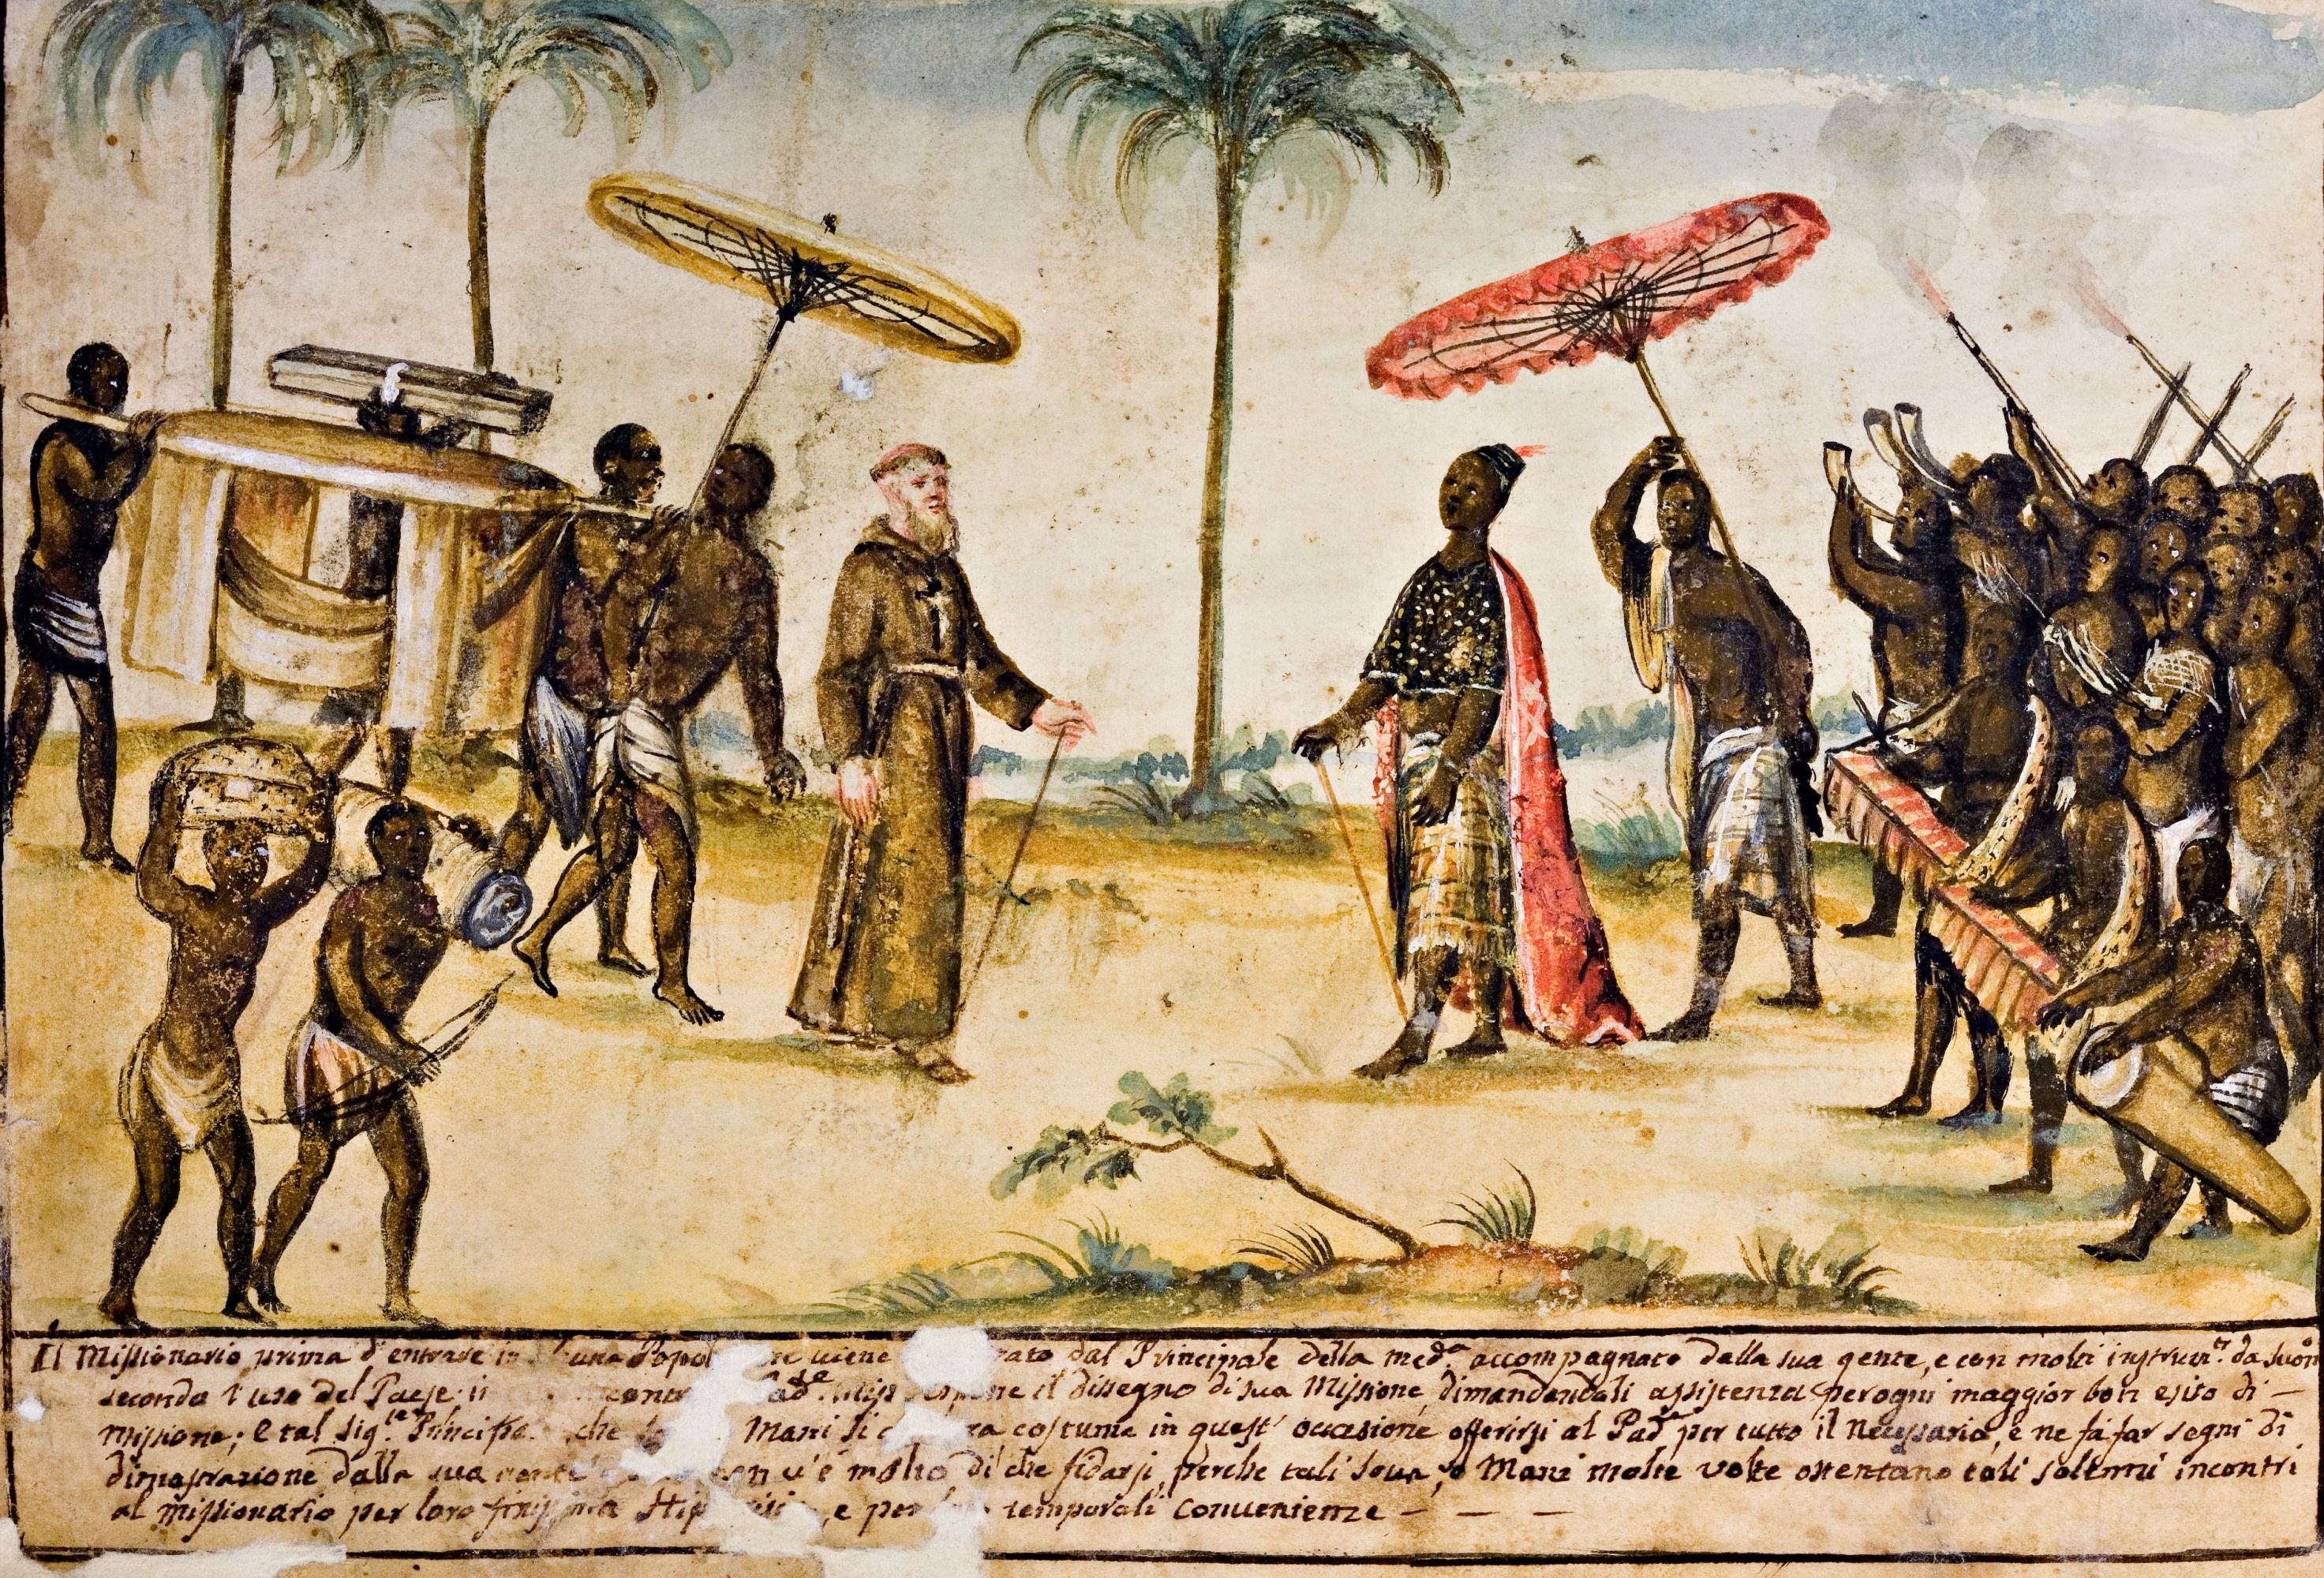 Il Missionario prima d'entrare in una Popol viene rato dal Principale della med.ᵃ accompagnato dalla sua gente, e con molti instrum.ᵗⁱ da suon
secondo l'uso del Paese: Miss. il dissegno di sua Missione, dimandandoli assistenza per ogni maggior bon esito di –
missione; e tal Sig.ʳᵉ che Mani si costuma in quest' occasione offerirsi al Padᵉ per tutto il necessario, e ne fà far segni di
dimostrazione dalla sua gente non v'è molto di che fidarsi, perche tali Soua, ò Mani molte volte ostentano tali solenni incontri
al missionario per loro e per temporali convenienze – – –